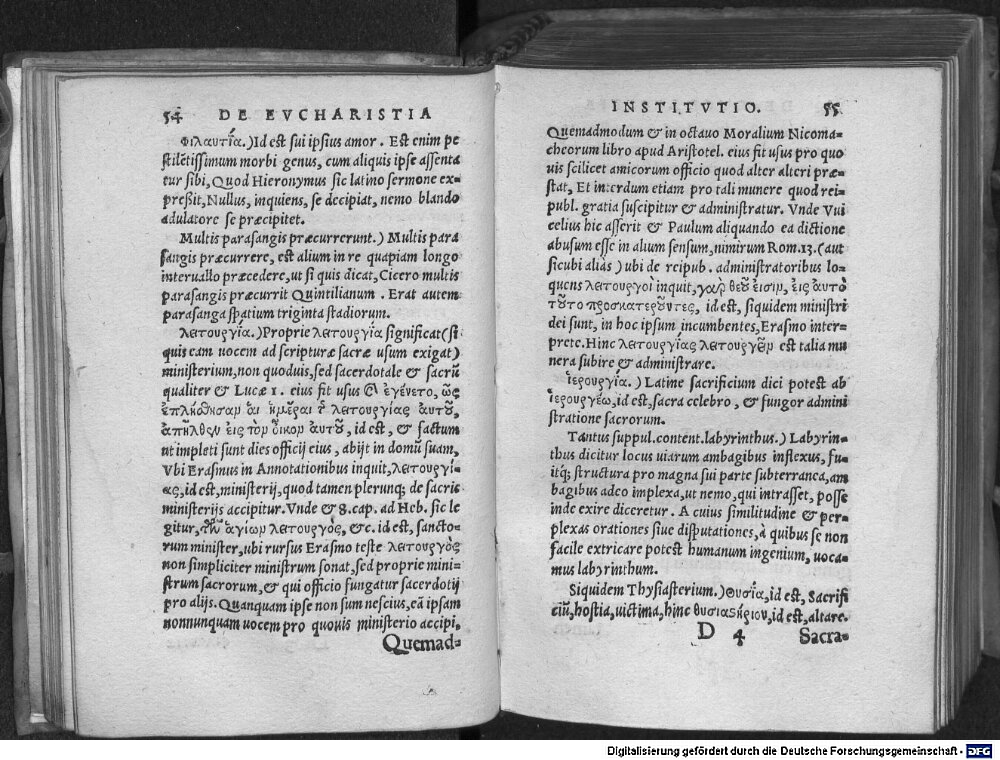 54 DE EVCHARISTIA
Φιλαυτία.) Id est sui ipsius amor. Est enim pe
stilētissimum morbi genus, cum aliquis ipse assenta
tur sibi, Quod Hieronymus sic latino sermone ex=
preßit, Nullus, inquiens, se decipiat, nemo blando
adulatore se præcipitet.
Multis parasangis præcurrerunt.) Multis para
sangis præcurrere, est alium in re quapiam longo
interuallo præcedere, ut si quis dicat, Cicero multis
parasangis præcurrit Quintilianum. Erat autem
parasanga spatium triginta stadiorum.
λειτουργία.) Proprie λειτουργία significat (si
quis eam uocem ad scripturæ sacræ usum exigat)
ministerium, non quoduis, sed sacerdotale & sacrū
qualiter & Lucæ 1. eius fit usus ἐγένετο, ὡς
ἐπλήσθησαν αἱ ἡμέραι τ̃ λειτουργίας αὐτοῦ,
ἀπῆλθεν εἰς τὸν οἶκον αὐτοῦ, id est, & factum
ut impleti sunt dies officij eius, abijt in domū suam,
Vbi Erasmus in Annotationibus inquit, λειτουργί=
ας, id est, ministerij, quod tamen plerunq; de sacris
ministerijs accipitur. Vnde & 8. cap. ad Heb. sic le
gitur, τῶν ἁγίων λειτουργὸς, &c. id est, sancto=
rum minister, ubi rursus Erasmo teste λειτουργὸς
non simpliciter ministrum sonat, sed proprie mini=
strum sacrorum, & qui officio fungatur sacerdotij
pro alijs. Quanquam ipse non sum nescius, eā ipsam
nonnunquam uocem pro quouis ministerio accipi,
Quemad=
INSTITVTIO. 55
Quemadmodum & in octauo Moralium Nicoma=
cheorum libro apud Aristotel. eius fit usus pro quo
uis scilicet amicorum officio quod alter alteri præ=
stat, Et interdum etiam pro tali munere quod rei=
publ. gratia suscipitur & administratur. Vnde Vui
celius hic asserit & Paulum aliquando ea dictione
abusum esse in alium sensum, nimirum Rom. 13. (aut
sicubi aliàs) ubi de reipub. administratoribus lo=
quens λειτουργοὶ inquit, γὰρ θεοῦ εἰσιν, εἰς αὐτὸ
τοῦτο προσκατεροῦντες, id est, siquidem ministri
dei sunt, in hoc ipsum incumbentes, Erasmo inter=
prete. Hinc λειτουργίας λειτουργεῖν est talia mu
nera subire & administrare.
ἱερουργία.) Latine sacrificium dici potest ab
ἱερουργέω, id est, sacra celebro, & fungor admini
stratione sacrorum.
Tantus suppul. content. labyrinthus.) Labyrin=
thus dicitur locus uiarum ambagibus inflexus, fu=
itq; structura pro magna sui parte subterranea, am
bagibus adeo implexa, ut nemo, qui intrasset, posse
inde exire diceretur. A cuius similitudine & per=
plexas orationes siue disputationes, à quibus se non
facile extricare potest humanum ingenium, uoca=
mus labyrinthum.
Siquidem Thysiasterium.) θυσία, id est, Sacrifi
ciū, hostia, uictima, hinc θυσιαστήριον, id est, altare.
D 4 Sacra=
Digitalisierung gefördert durch die Deutsche Forschungsgemeinschaft - DFG